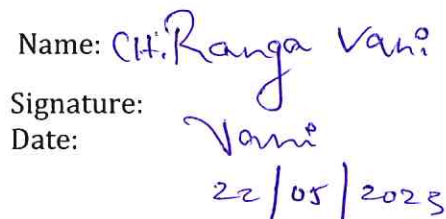 Name: CH. Ranga Vani
Signature: Vani
Date: 22/05/2023